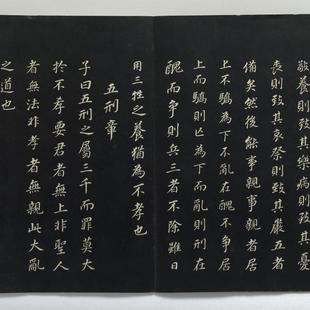 敬養則致其樂病則致其憂
喪則致其哀祭則致其嚴五者
備矣然後能事親事親者居
上不驕為下不亂在醜不争居
上而驕則亡為下而亂則刑在
醜而争則兵三者不除雖日
用三牲之養猶為不孝也
五刑章
子曰五刑之屬三千而罪莫大
於不孝要君者無上非聖人
者無法非孝者無親此大亂
之道也